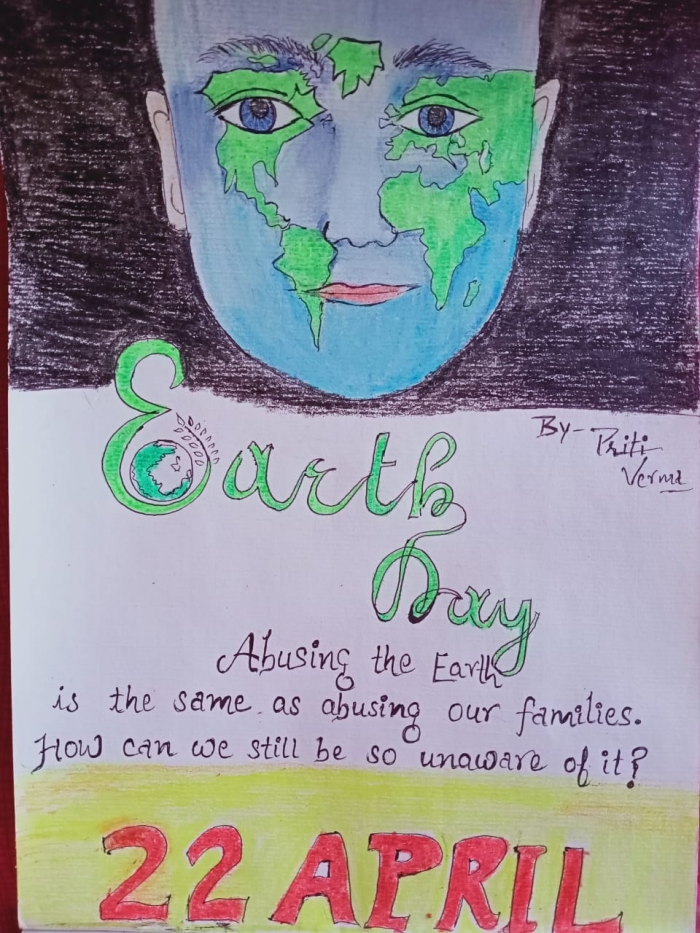 By- Priti
Verma
Earth
Day
Abusing the Earth
is the same as abusing our families.
How can we still be so unaware of it?
22 APRIL